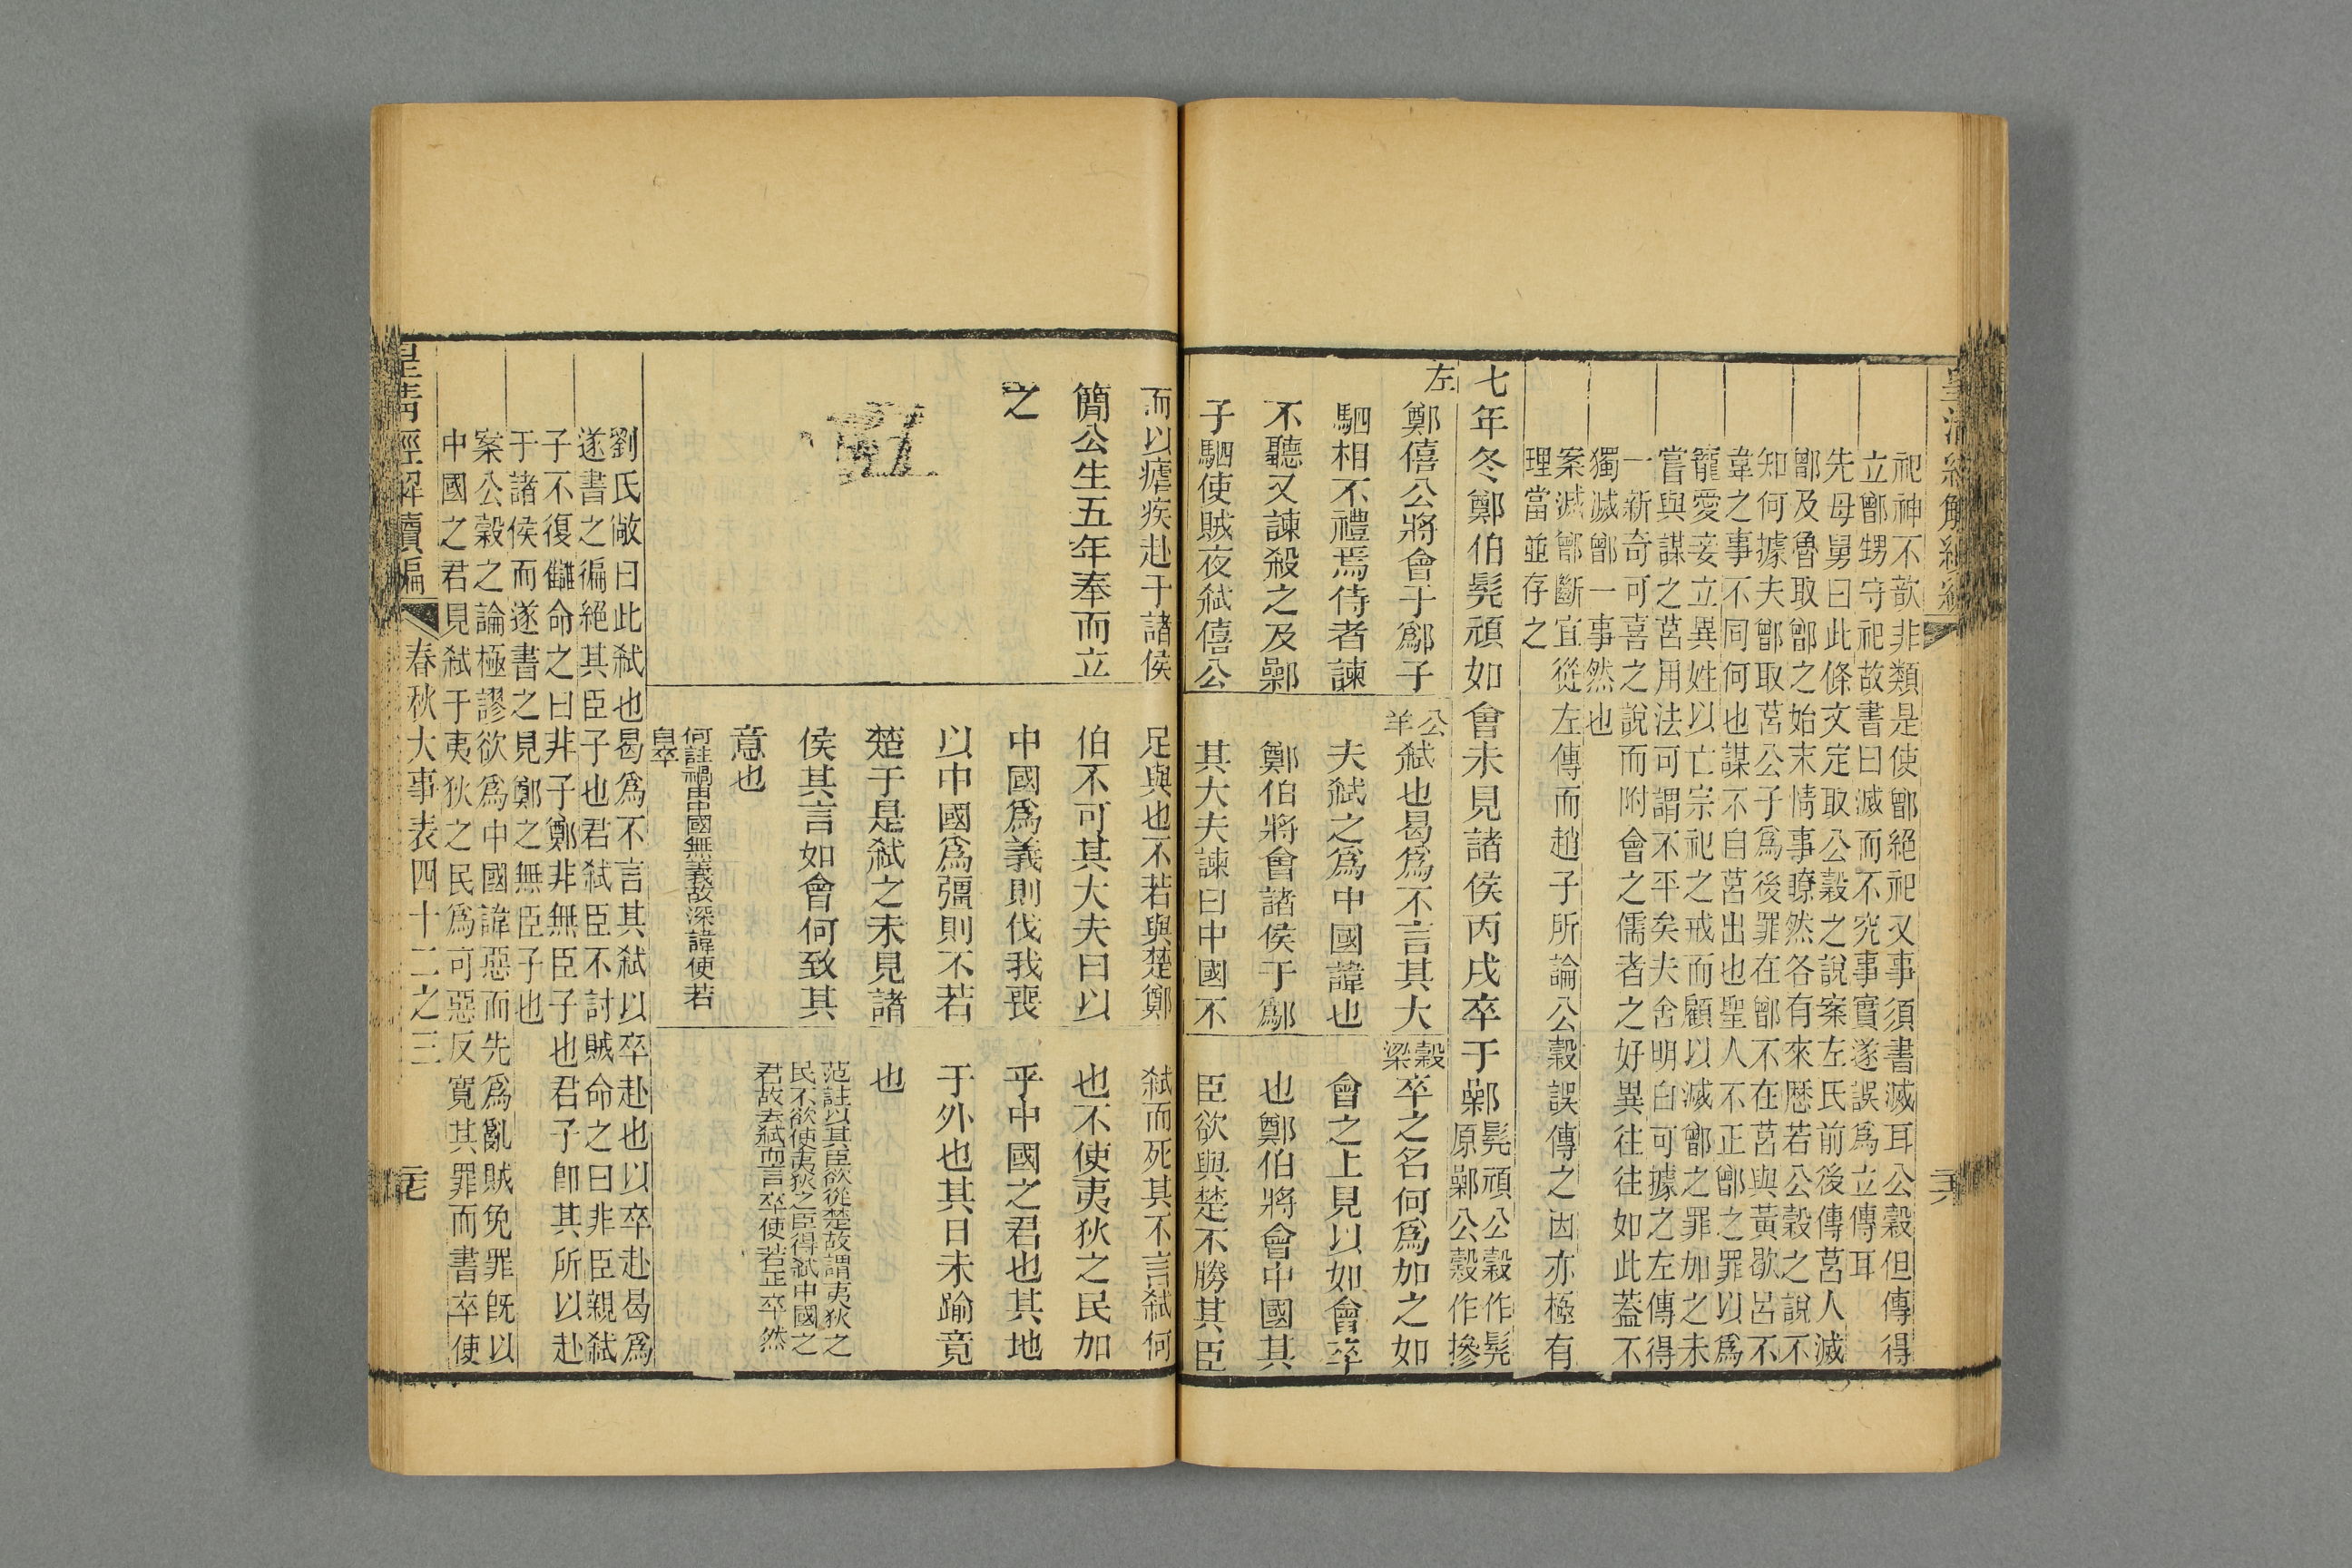 祀神不歆非類是使鄫絕祀又事須書滅耳公穀但傳得
立鄫甥守祀故書曰滅而不究事實遂誤爲立傳耳
先母舅曰此條文定取公穀之說案左氏前後傳莒人滅
鄫及魯取鄫之始末情事瞭然各有來歷若公穀之說不
知何據夫鄫取莒公子爲後罪在鄫不在莒與黃歇呂不
韋之事不同何也謀不自莒出也聖人不正鄫之罪以爲
寵愛妾立異姓以亡宗祀之戒而顧以滅鄫之罪加之未
嘗與謀之莒用法可謂不平矣夫舍明白可據之左傳得
一新奇可喜之說而附會之儒者之好異往往如此葢不
獨滅鄫一事然也
案滅鄫斷宜從左傳而趙子所論公穀誤傳之因亦極有
理當並存之
七年冬鄭伯髠頑如會未見諸侯丙戌卒于鄵
髠頑公穀作髠
原鄵公穀作摻
左
鄭僖公將會于鄬子
駟相不禮焉侍者諫
不聽又諫殺之及鄵
子駟使賊夜弒僖公
而以瘧疾赴于諸侯
簡公生五年奉而立
之
公羊
弒也曷爲不言其大
夫弒之爲中國諱也
鄭伯將會諸侯于鄬
其大夫諫曰中國不
足與也不若與楚鄭
伯不可其大夫曰以
中國爲義則伐我喪
以中國爲彊則不若
楚于是弒之未見諸
侯其言如會何致其
意也
何註禍由中國無義故深諱使若
自卒
穀梁
卒之名何爲加之如
會之上見以如會卒
也鄭伯將會中國其
臣欲與楚不勝其臣
弒而死其不言弒何
也不使夷狄之民加
乎中國之君也其地
于外也其日未踰竟
也
范註以其臣欲從楚故謂夷狄之
民不欲使夷狄之臣得弒中國之
君故去弒而言卒使若正卒然
劉氏敞曰此弒也曷爲不言其弒以卒赴也以卒赴曷爲
遂書之徧絕其臣子也君弒臣不討賊命之曰非臣親弒
子不復讎命之曰非子鄭非無臣子也君子卽其所以赴
于諸侯而遂書之見鄭之無臣子也
案公穀之論極謬欲爲中國諱惡而先爲亂賊免罪旣以
中國之君見弒于夷狄之民爲可惡反寬其罪而書卒使
皇清經解續編
春秋大事表四十二之三